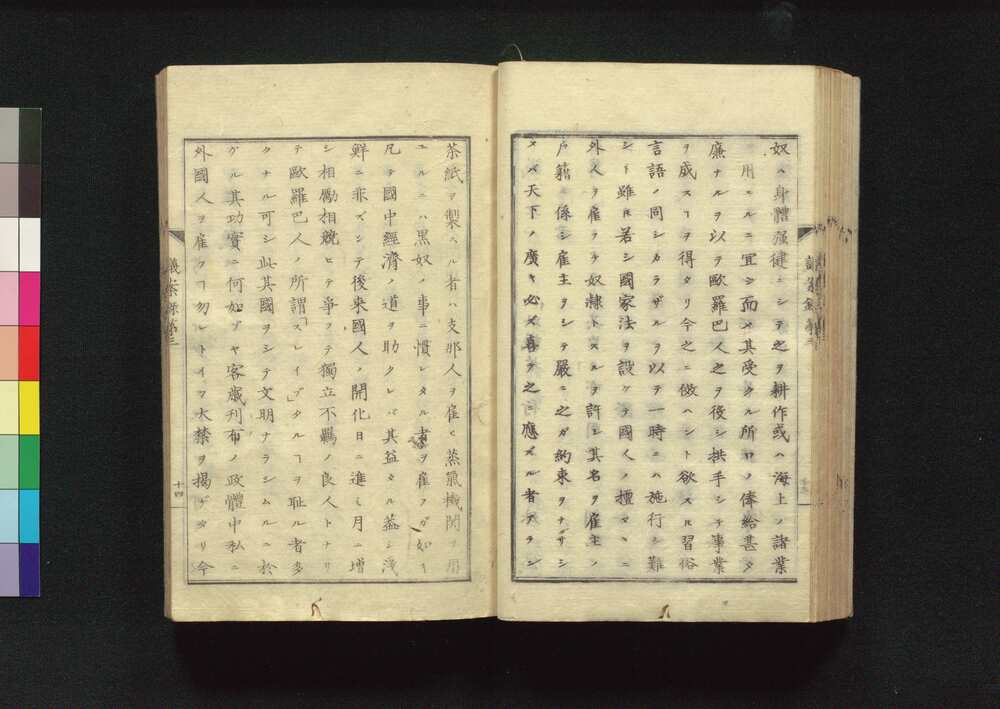 奴ハ身體强健ニシテ之ヲ耕作或ハ海上ノ諸業
用ユルニ宜シ而メ其受クル所ロノ俸給甚タ
廉ナルヲ以テ歐羅巴人之ヲ役シ拱手シテ事業
ヲ成スヿヲ得タリ今之ニ傚ハント欲スル習俗
言語ノ同シカラザルヲ以テ一時ニハ施行シ難
シト雖𪜈若シ國家法ヲ設ケテ國人ノ擅マヽニ
外人ヲ雇ヲテ奴隷トスルヲ許シ其名ヲ雇主ノ
戸籍ニ係シ雇主ヲシテ嚴ニ之ガ約束ヲナサシ
メバ天下ノ廣キ必ズ喜テ之ニ應ズル者アラン
茶紙ヲ製スル者ハ支那人ヲ雇ヒ蒸氣機関ヲ用
ユルニハ黒奴ノ事ニ慣レタル者ヲ雇フガ如キ
凡テ國中經濟ノ道ヲ助クレバ其益タル蓋シ淺
鮮ニ非ズシテ後來國人ノ開化日ニ進ミ月ニ増
シ相勵相競ヒテ爭フテ獨立不羈ノ良人トナリ
テ歐羅巴人ノ所謂「スレイブ」タルヿヲ恥ル者多
クナル可シ此其國ヲシテ文明ナラシムルニ於
グル其功實ニ何如ゾヤ客歲刋布ノ政體中私ニ
外國人ヲ雇フヿ勿レトイフ大禁ヲ揭ゲタリ今
議案録第三
十四